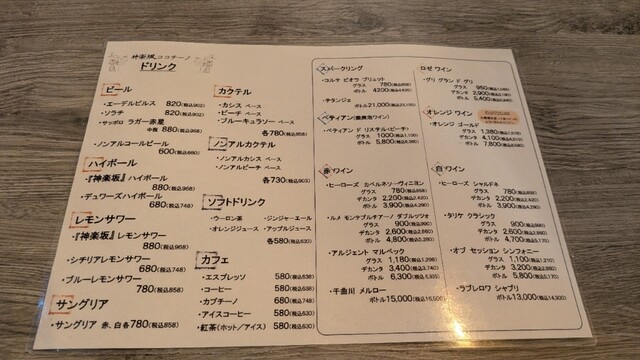 神楽坂ココナーノ
ドリンク
ビール
・エーデルピルス 820(税込902)
・ソラチ 820(税込902)
・サッポロ ラガー赤星
中瓶 880(税込968)
・ノンアルコールビール
600(税込660)
ハイボール
・『神楽坂』ハイボール
880(税込968)
・デュワーズハイボール
680(税込748)
レモンサワー
・『神楽坂』レモンサワー
880(税込968)
・シチリアレモンサワー
680(税込748)
・ブルーレモンサワー
780(税込858)
サングリア
・サングリア 赤、白 各780(税込858)
カクテル
・カシス ベース
・ピーチ ベース
・ブルーキュラソー ベース
各780(税込858)
ノンアルカクテル
・ノンアルカシス ベース
・ノンアルピーチ ベース
各730(税込803)
ソフトドリンク
・ウーロン茶 ・ジンジャーエール
・オレンジジュース ・アップルジュース
各580(税込638)
カフェ
・エスプレッソ 580(税込638)
・コーヒー 580(税込638)
・カプチーノ 680(税込748)
・アイスコーヒー 580(税込638)
・紅茶(ホット/アイス) 580(税込638)
スパークリング
・コルサ ビオラ ブリュット
グラス 780(税込858)
ボトル 4200(税込4620)
・テタンジェ
ボトル 21,000
ペティアン(微発泡ワイン)
・ペティアン ド リステル(ピーチ)
グラス 1000
ボトル 5,800(税込6,380)
赤ワイン
・ヒーローズ カベルネソーヴィニヨン
グラス 780(税込858)
デカンタ 2,200(税込2,420)
ボトル 3,900(税込4,290)
・ルナ モンテプルチアーノ ダブルッツオ
グラス 900(税込990)
デカンタ 2,600(税込2,860)
ボトル 4,800(税込5,280)
・アルジェント マルベック
グラス 1,180(税込1,298)
デカンタ 3,400(税込3,740)
ボトル 6,300
・千曲川 メルロー
ボトル 15,000
ロゼ ワイン
・グリ グラン ド グリ
グラス 950
デカンタ 2,900
ボトル 5,400
オレンジ ワイン
・オレンジ ゴールド
グラス 1,380
デカンタ 4,100
ボトル 7,800(税込8,580)
白ワイン
・ヒーローズ シャルドネ
グラス 780(税込858)
デカンタ 2,200(税込2,420)
ボトル 3,900(税込4,290)
・タリケ クラシック
グラス 900(税込990)
デカンタ 2,600(税込2,860)
ボトル 4,700(税込5,170)
・オブ セッション シンフォニー
グラス 1,100(税込1,210)
デカンタ 3,200
ボトル 5,800
・ラブレロワ シャブリ
ボトル 13,000(税込14,300)